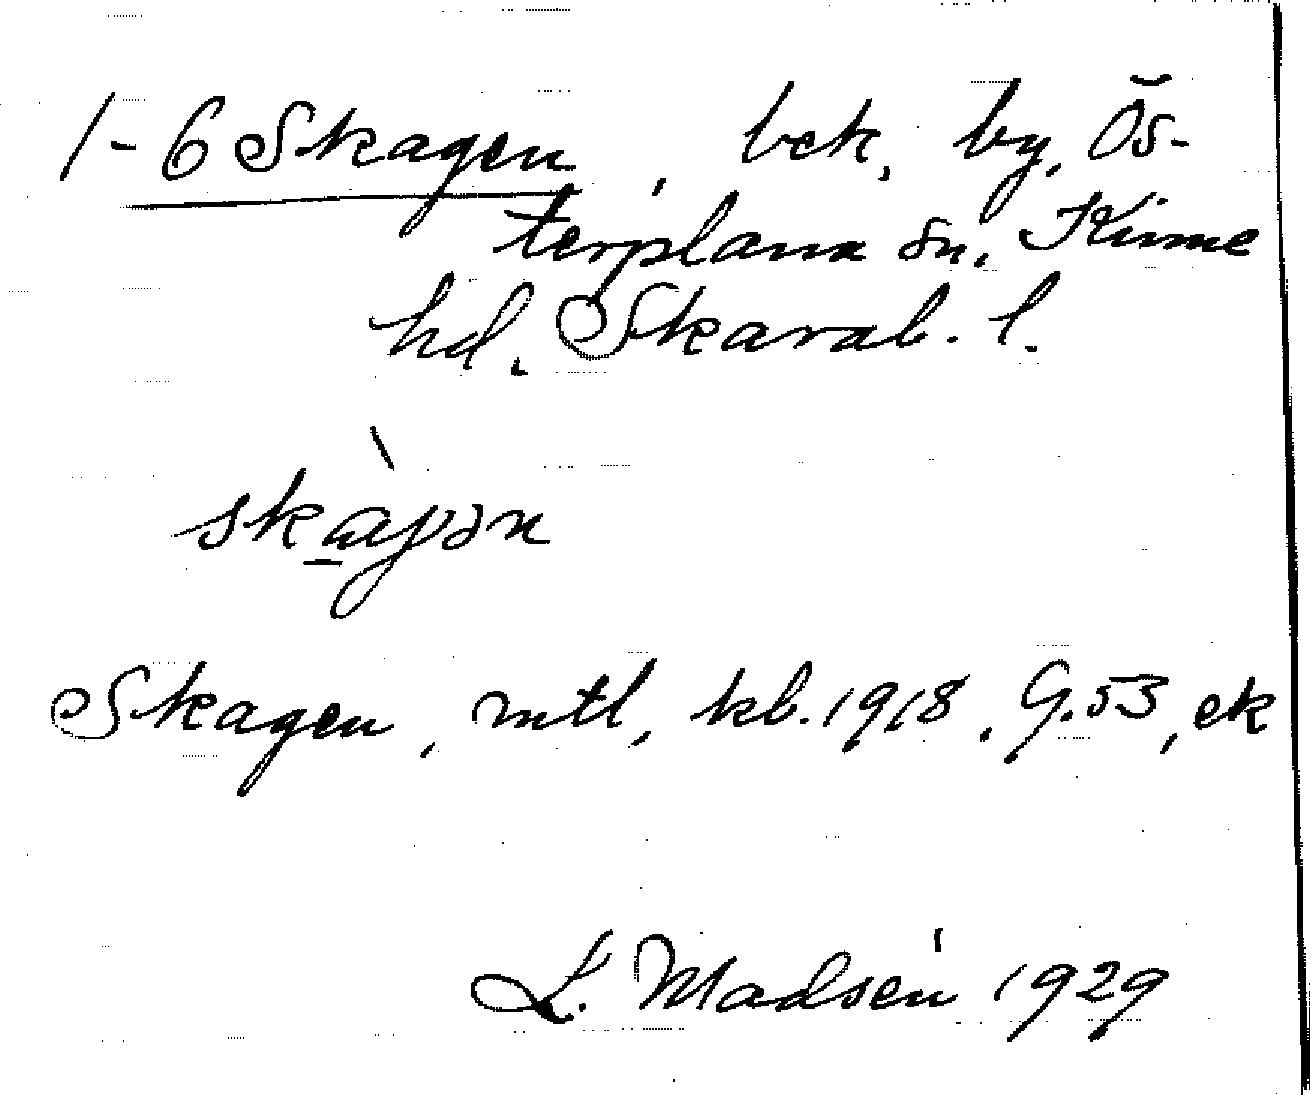 1-6 Skagen, bek. by, Ös-
terplana sn, Kinne
hd. Skarab. l.
skàgən
Skagen, mtl, kb. 1918. G.53, ek
L. Madsén 1929